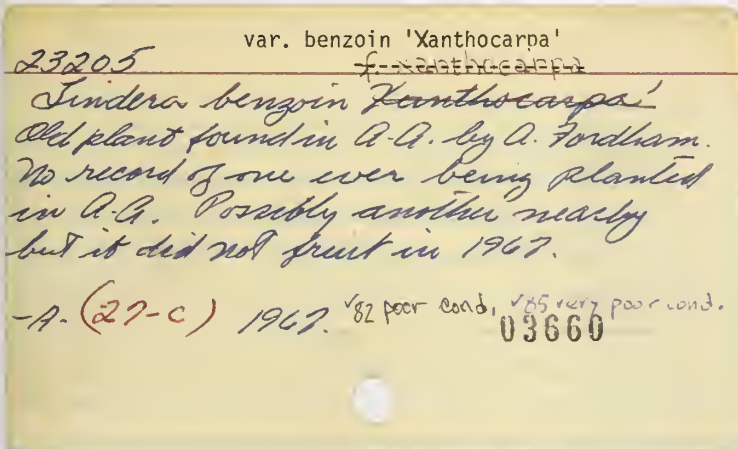 var. benzoin 'Xanthocarpa'
23205 f. xanthocarpa
Lindera benzoin Xanthocarpa'
Old plant found in A.A. by A. Fordham.
No record of one ever being planted
in A.A. Possibly another nearby
but it did not fruit in 1967.
-A- (27-C) 1967. √82 poor cond, √85 very poor cond.
03660